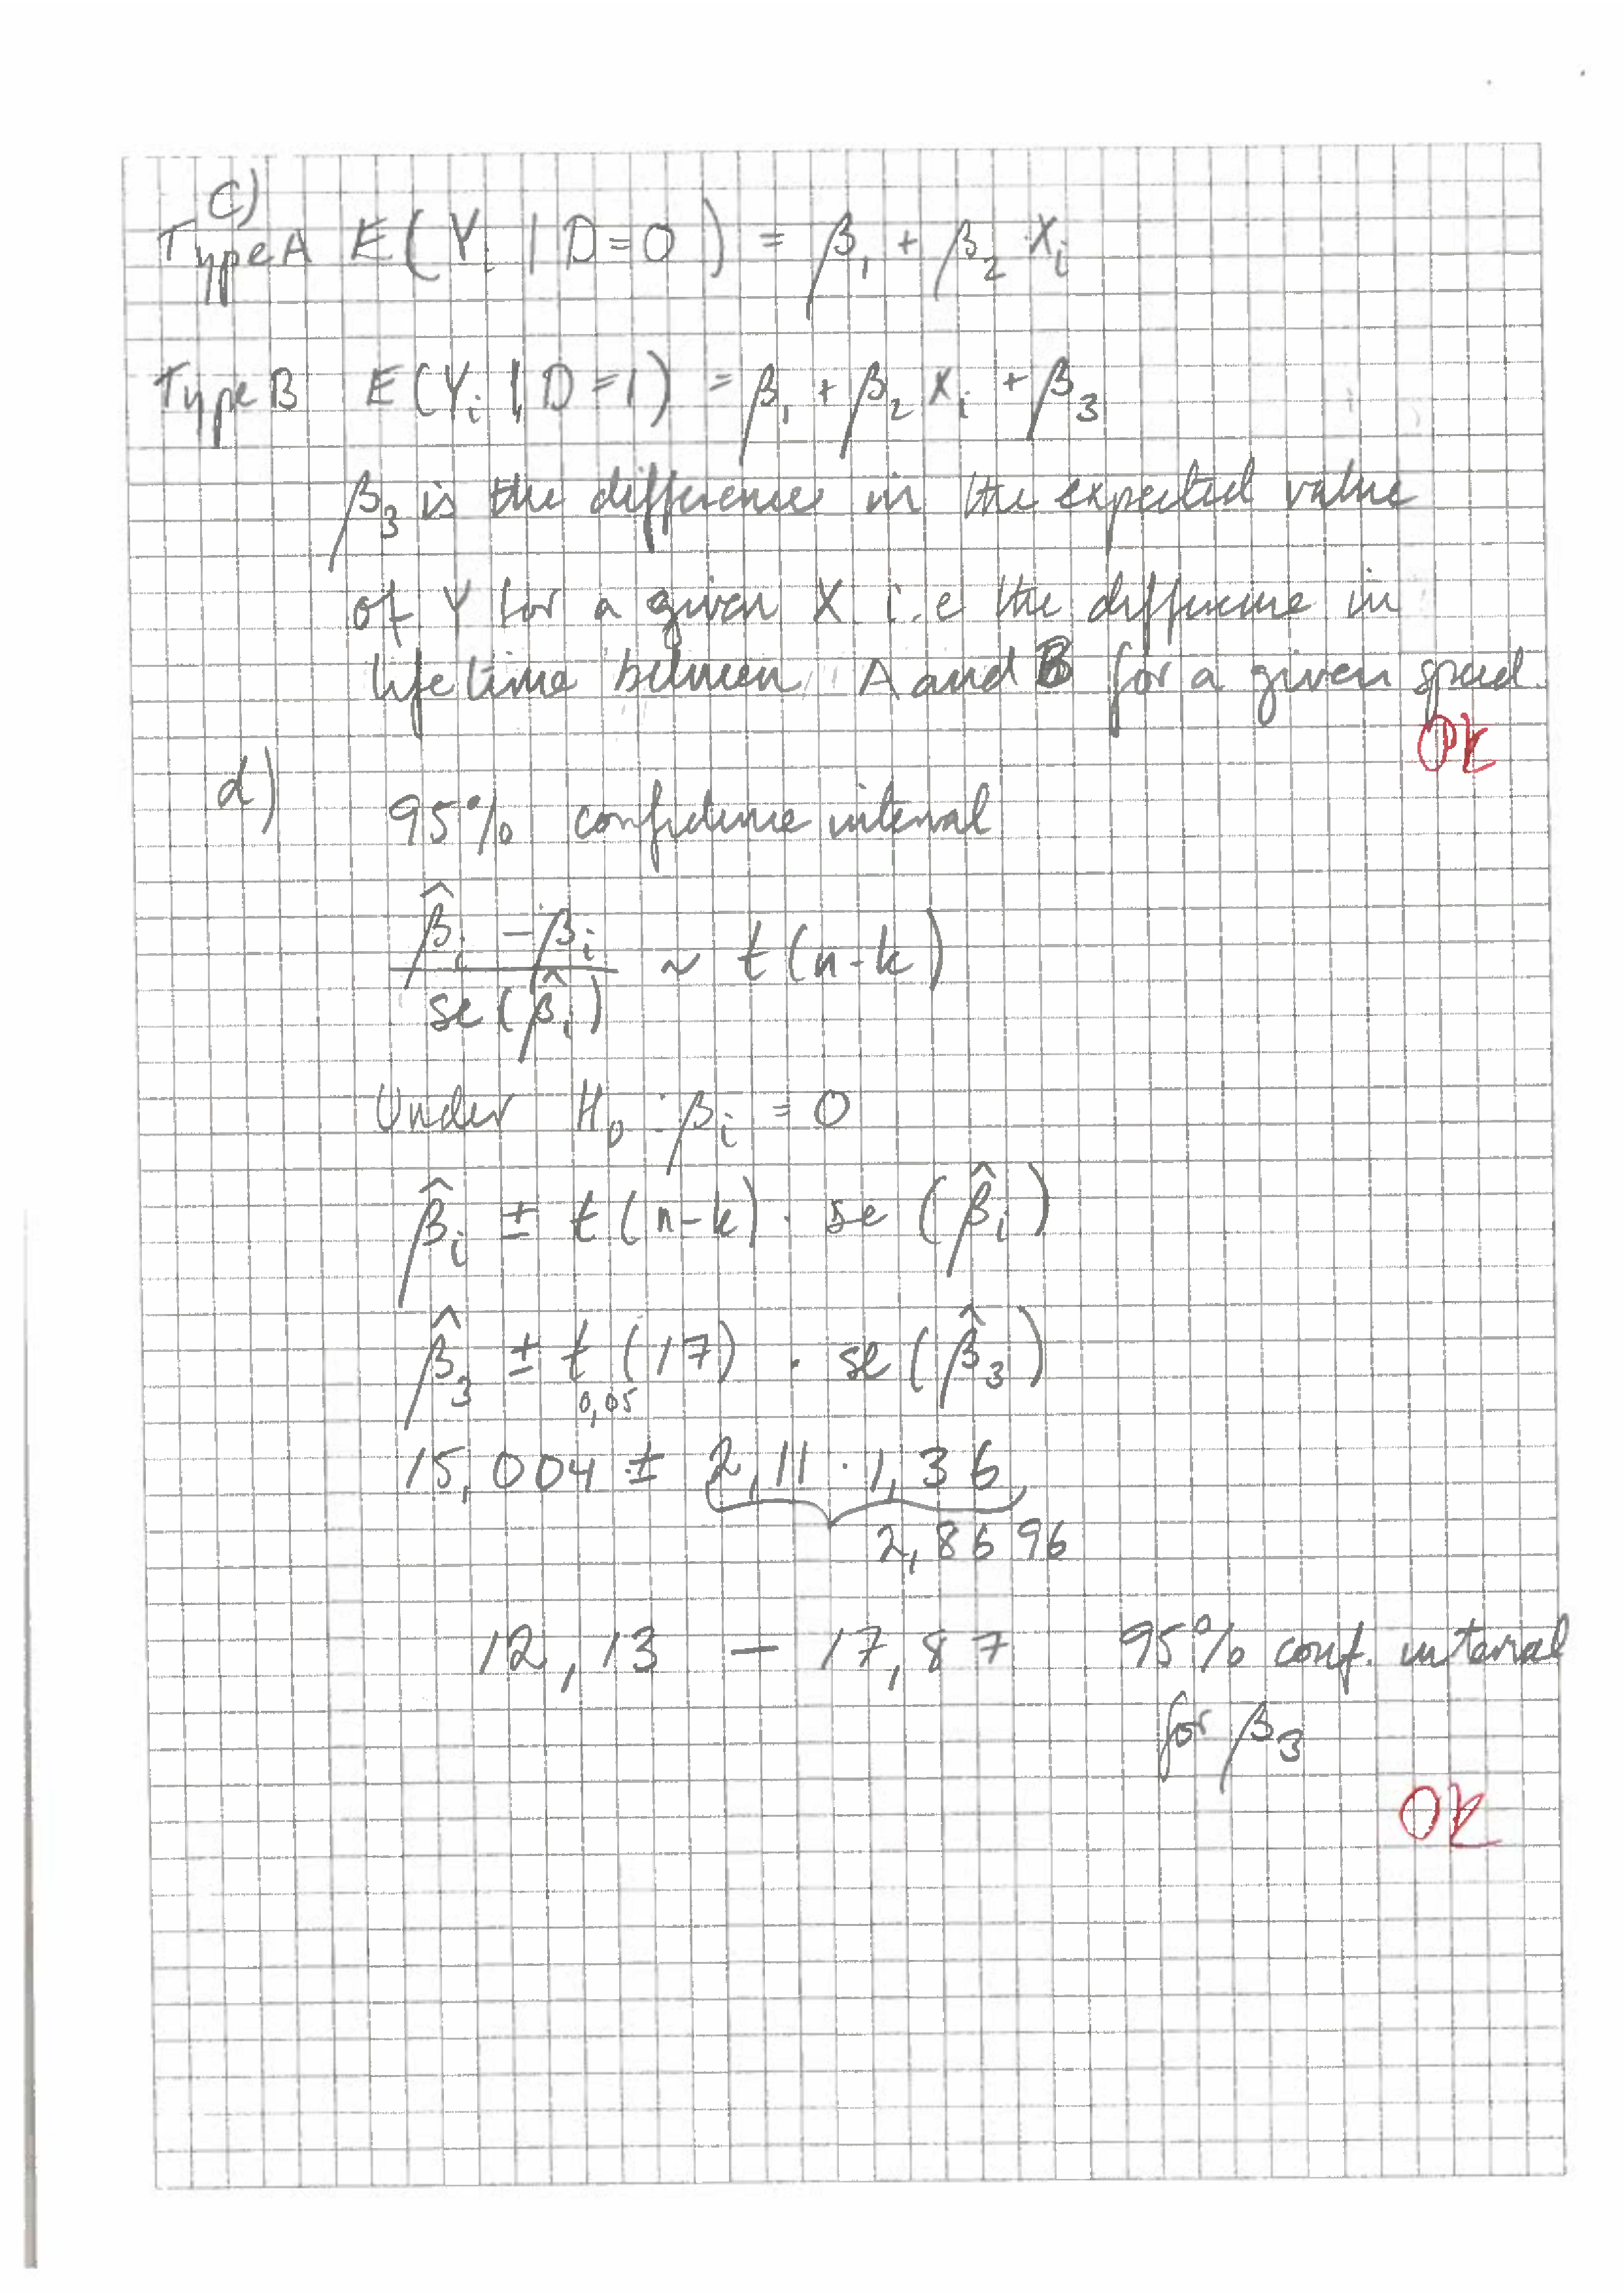 c)
Type A E(Yi | D=0) = β1 + β2 Xi
Type B E(Yi | D=1) = β1 + β2 Xi + β3
β3 is the difference in the expected value
of Y for a given X i.e the difference in
life time between A and B for a given speed.
OK
d) 95% confidence interval
(β̂i - βi) / se(β̂i) ~ t(n-k)
Under H0: βi = 0
β̂i ± t(n-k) · se(β̂i)
β̂3 ± t0,05 (17) · se(β̂3)
15,004 ± 2,11 · 1,36
2,8696
12,13 – 17,87 95% conf. interval
for β3
OK